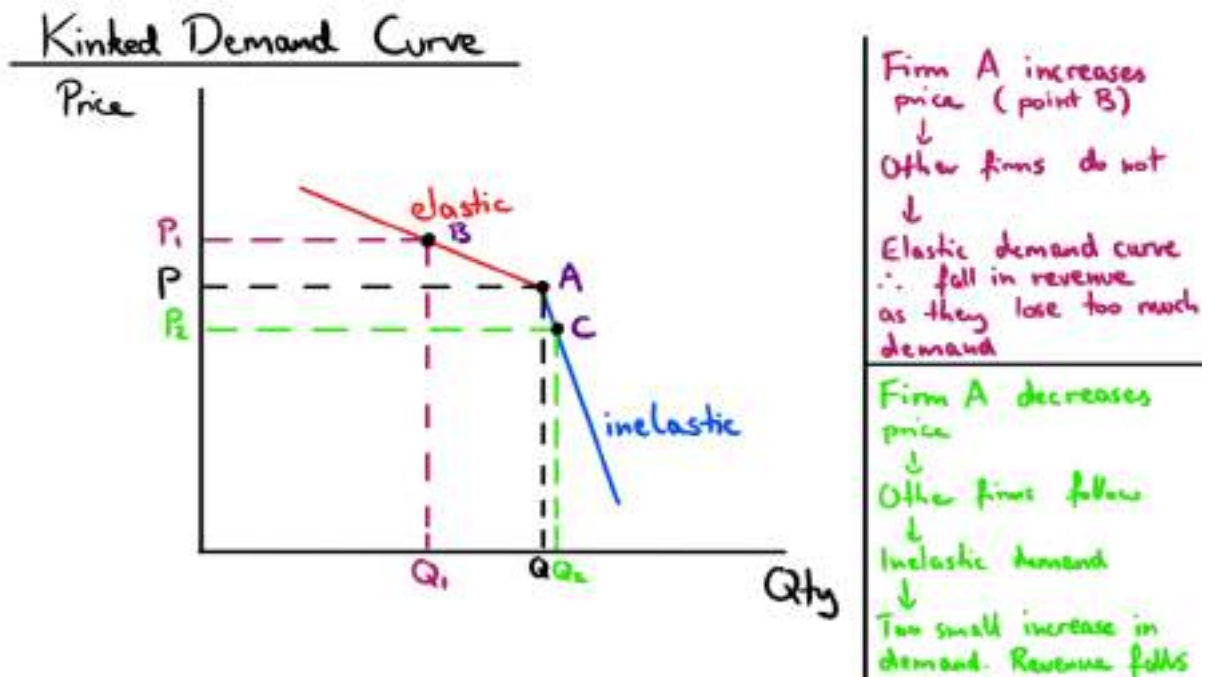 Kinked Demand Curve
Price
elastic
P₁
B
P
A
P₂
C
inelastic
Q₁
Q
Q₂
Qty
Firm A increases
price (point B)
↓
Other firms do not
↓
Elastic demand curve
∴ fall in revenue
as they lose too much
demand
Firm A decreases
price
↓
Other firms follow
↓
Inelastic demand
↓
Too small increase in
demand. Revenue falls